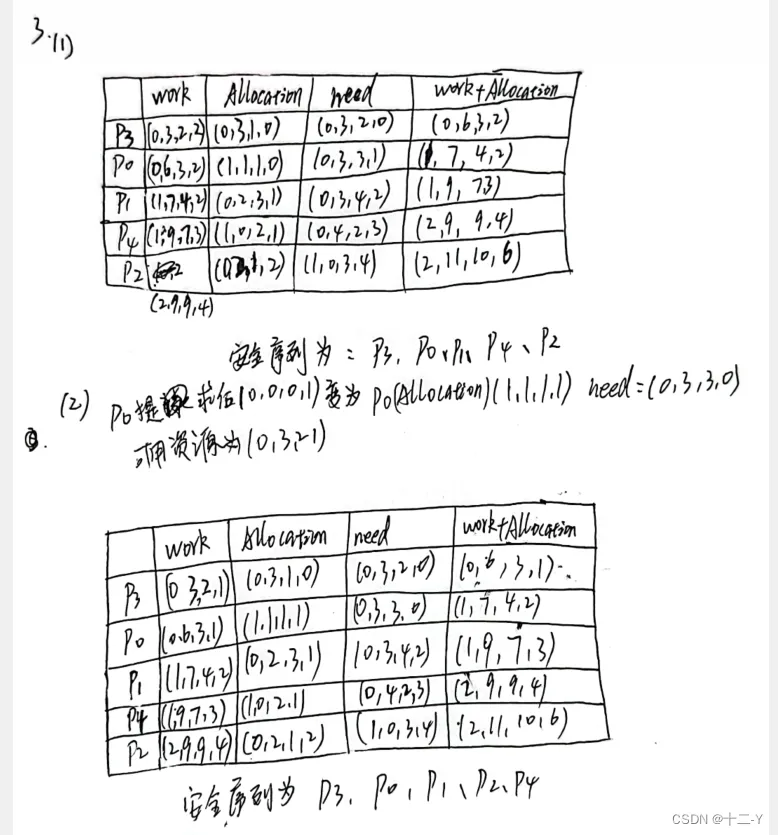 3.(1)
work Allocation need work+Allocation
P3 (0,3,2,2) (0,3,1,0) (0,3,2,0) (0,6,3,2)
P0 (0,6,3,2) (1,1,1,0) (0,3,3,1) (1,7,4,2)
P1 (1,7,4,2) (0,2,3,1) (0,3,4,2) (1,9,7,3)
P4 (1,9,7,3) (1,0,2,1) (0,4,2,3) (2,9,9,4)
P2 (1,0,3,4) (2,11,10,6)
(2,9,9,4)
安全序列为：P3、P0、P1、P4、P2
(2) P0提 求后(0,0,0,1)变为P0(Allocation)(1,1,1,1) need=(0,3,3,0)
可用资源为(0,3,2,1)
work Allocation need work+Allocation
P3 (0 3,2,1) (0,3,1,0) (0,3,2,0) (0,6,3,1)
P0 (0,6,3,1) (1,1,1,1) (0,3,3,0) (1,7,4,2)
P1 (1,7,4,2) (0,2,3,1) (0,3,4,2) (1,9,7,3)
P4 (1,9,7,3) (1,0,2,1) (0,4,2,3) (2,9,9,4)
P2 (2,9,9,4) (0,2,1,2) (1,0,3,4) (2,11,10,6)
安全序列为 P3、P0、P1、P2、P4
CSDN @十二-Y